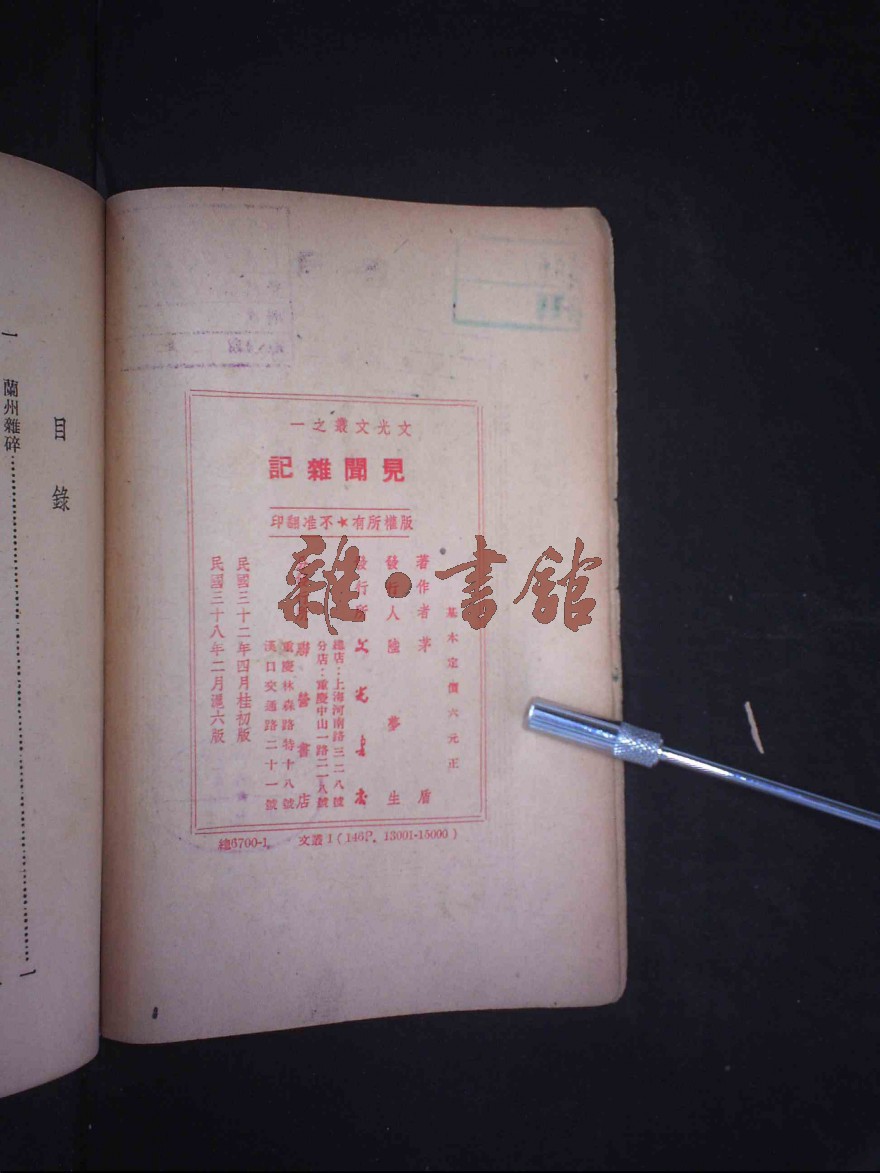 文光文叢之一
見聞雜記
版權所有★不准翻印
基本定價六元正
著作者 茅 盾
發行人 陸夢生
發行所 文光書店
總店：上海河南路三二八號
分店：重慶中山一路二一八號
聯營書店
重慶林森路特十八號
漢口交通路二十一號
民國三十二年四月桂初版
民國三十八年二月滬六版
總6700-1 文叢1(146P. 13001-15000)
目錄
一 蘭州雜碎……1
雜·書館